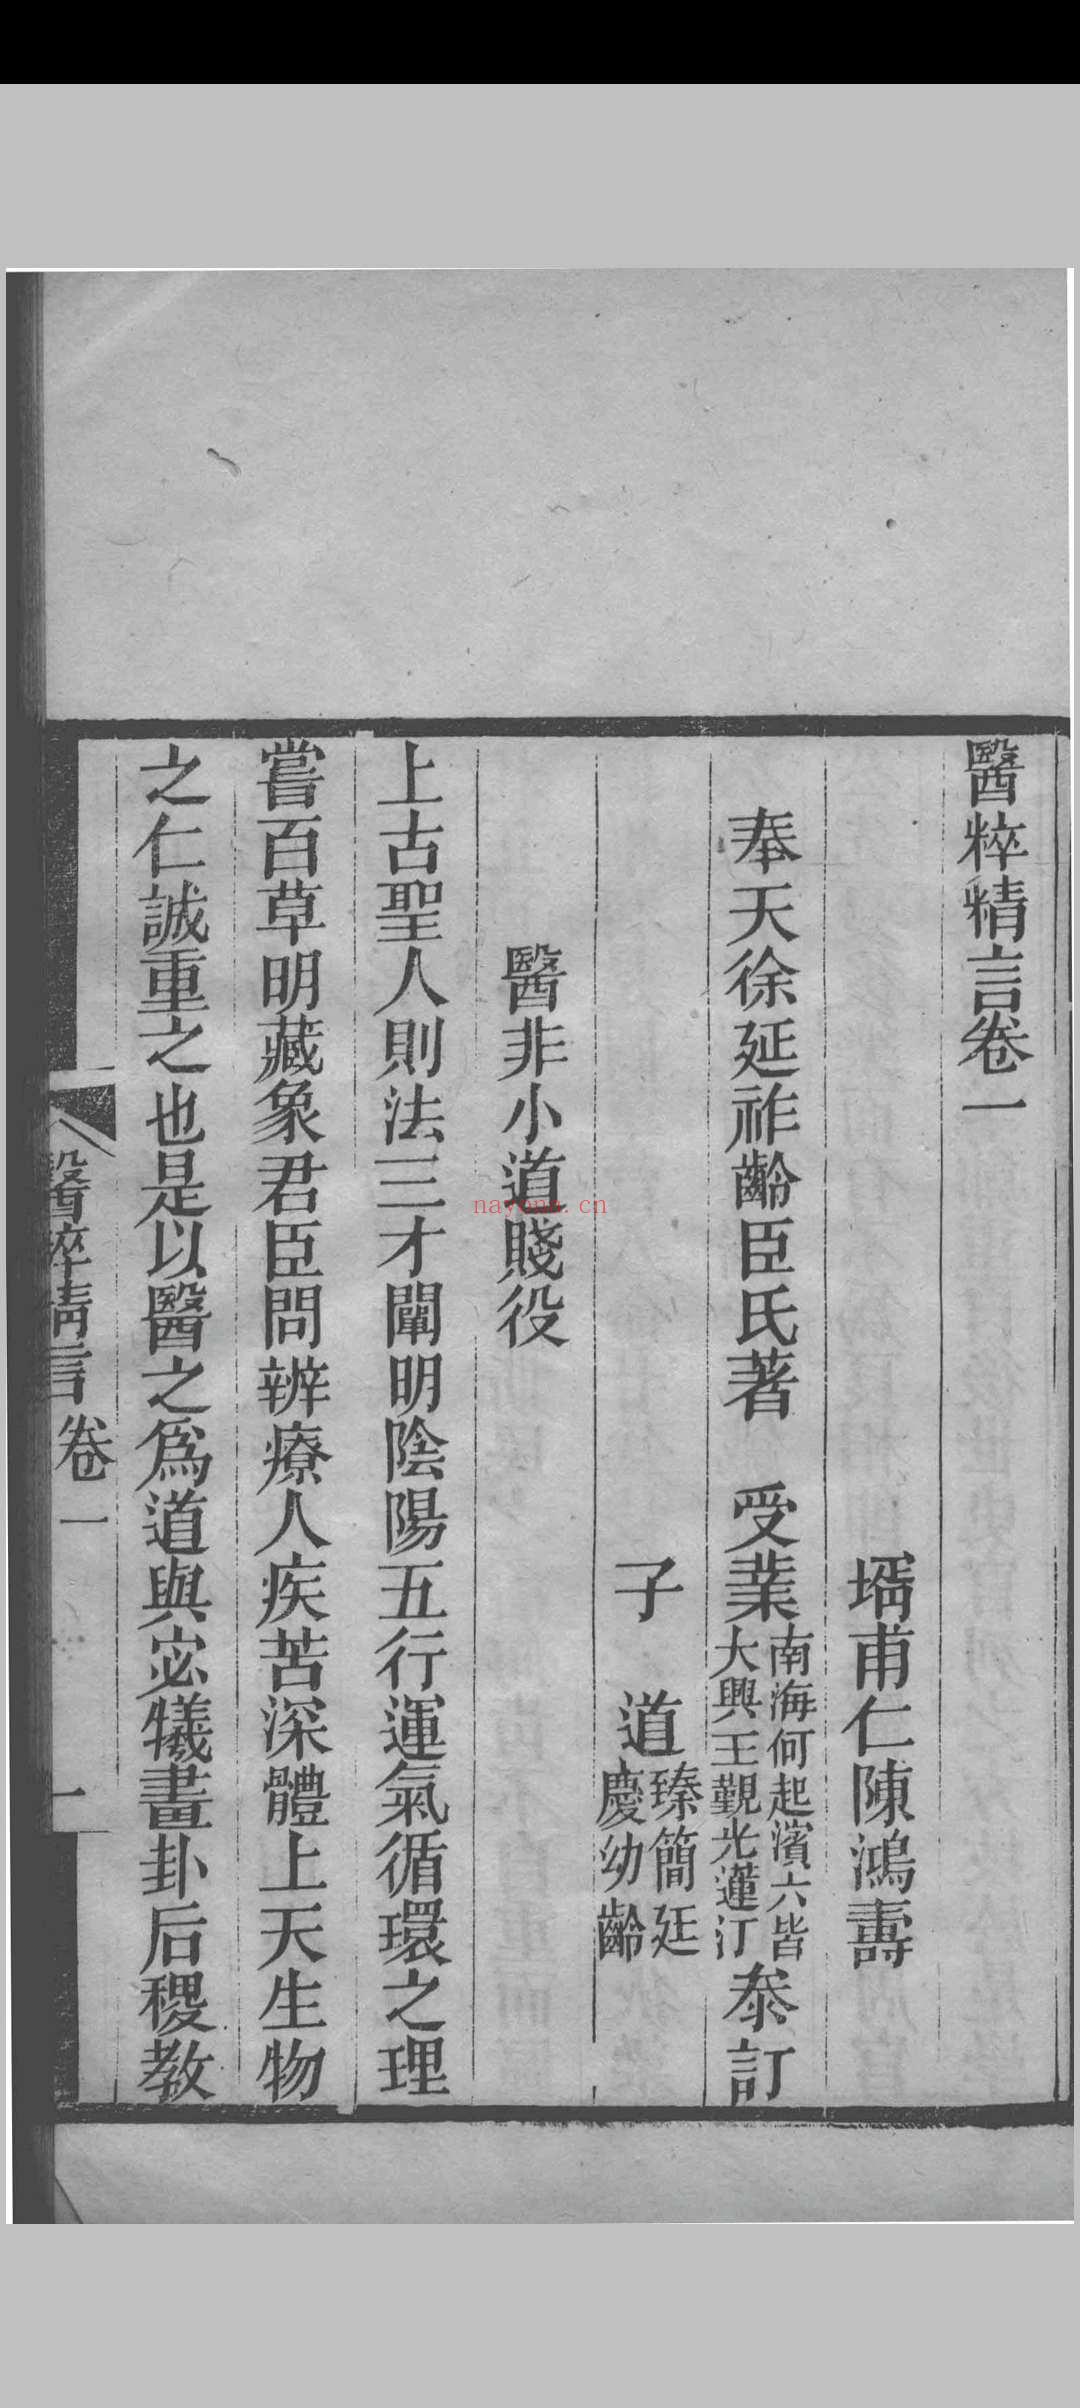 醫粹精言卷一
壻甫仁陳鴻壽
奉天徐延祚齡臣氏著　受業南海何起濱六皆大興王觀光蓮汀叅訂
子　道臻簡廷慶幼齡
醫非小道賤役
上古聖人則法三才闡明陰陽五行運氣循環之理
嘗百草明藏象君臣問辨療人疾苦深體上天生物
之仁誠重之也是以醫之爲道與宓犧畫卦后稷教
醫粹精言卷一　一
nayona.cn